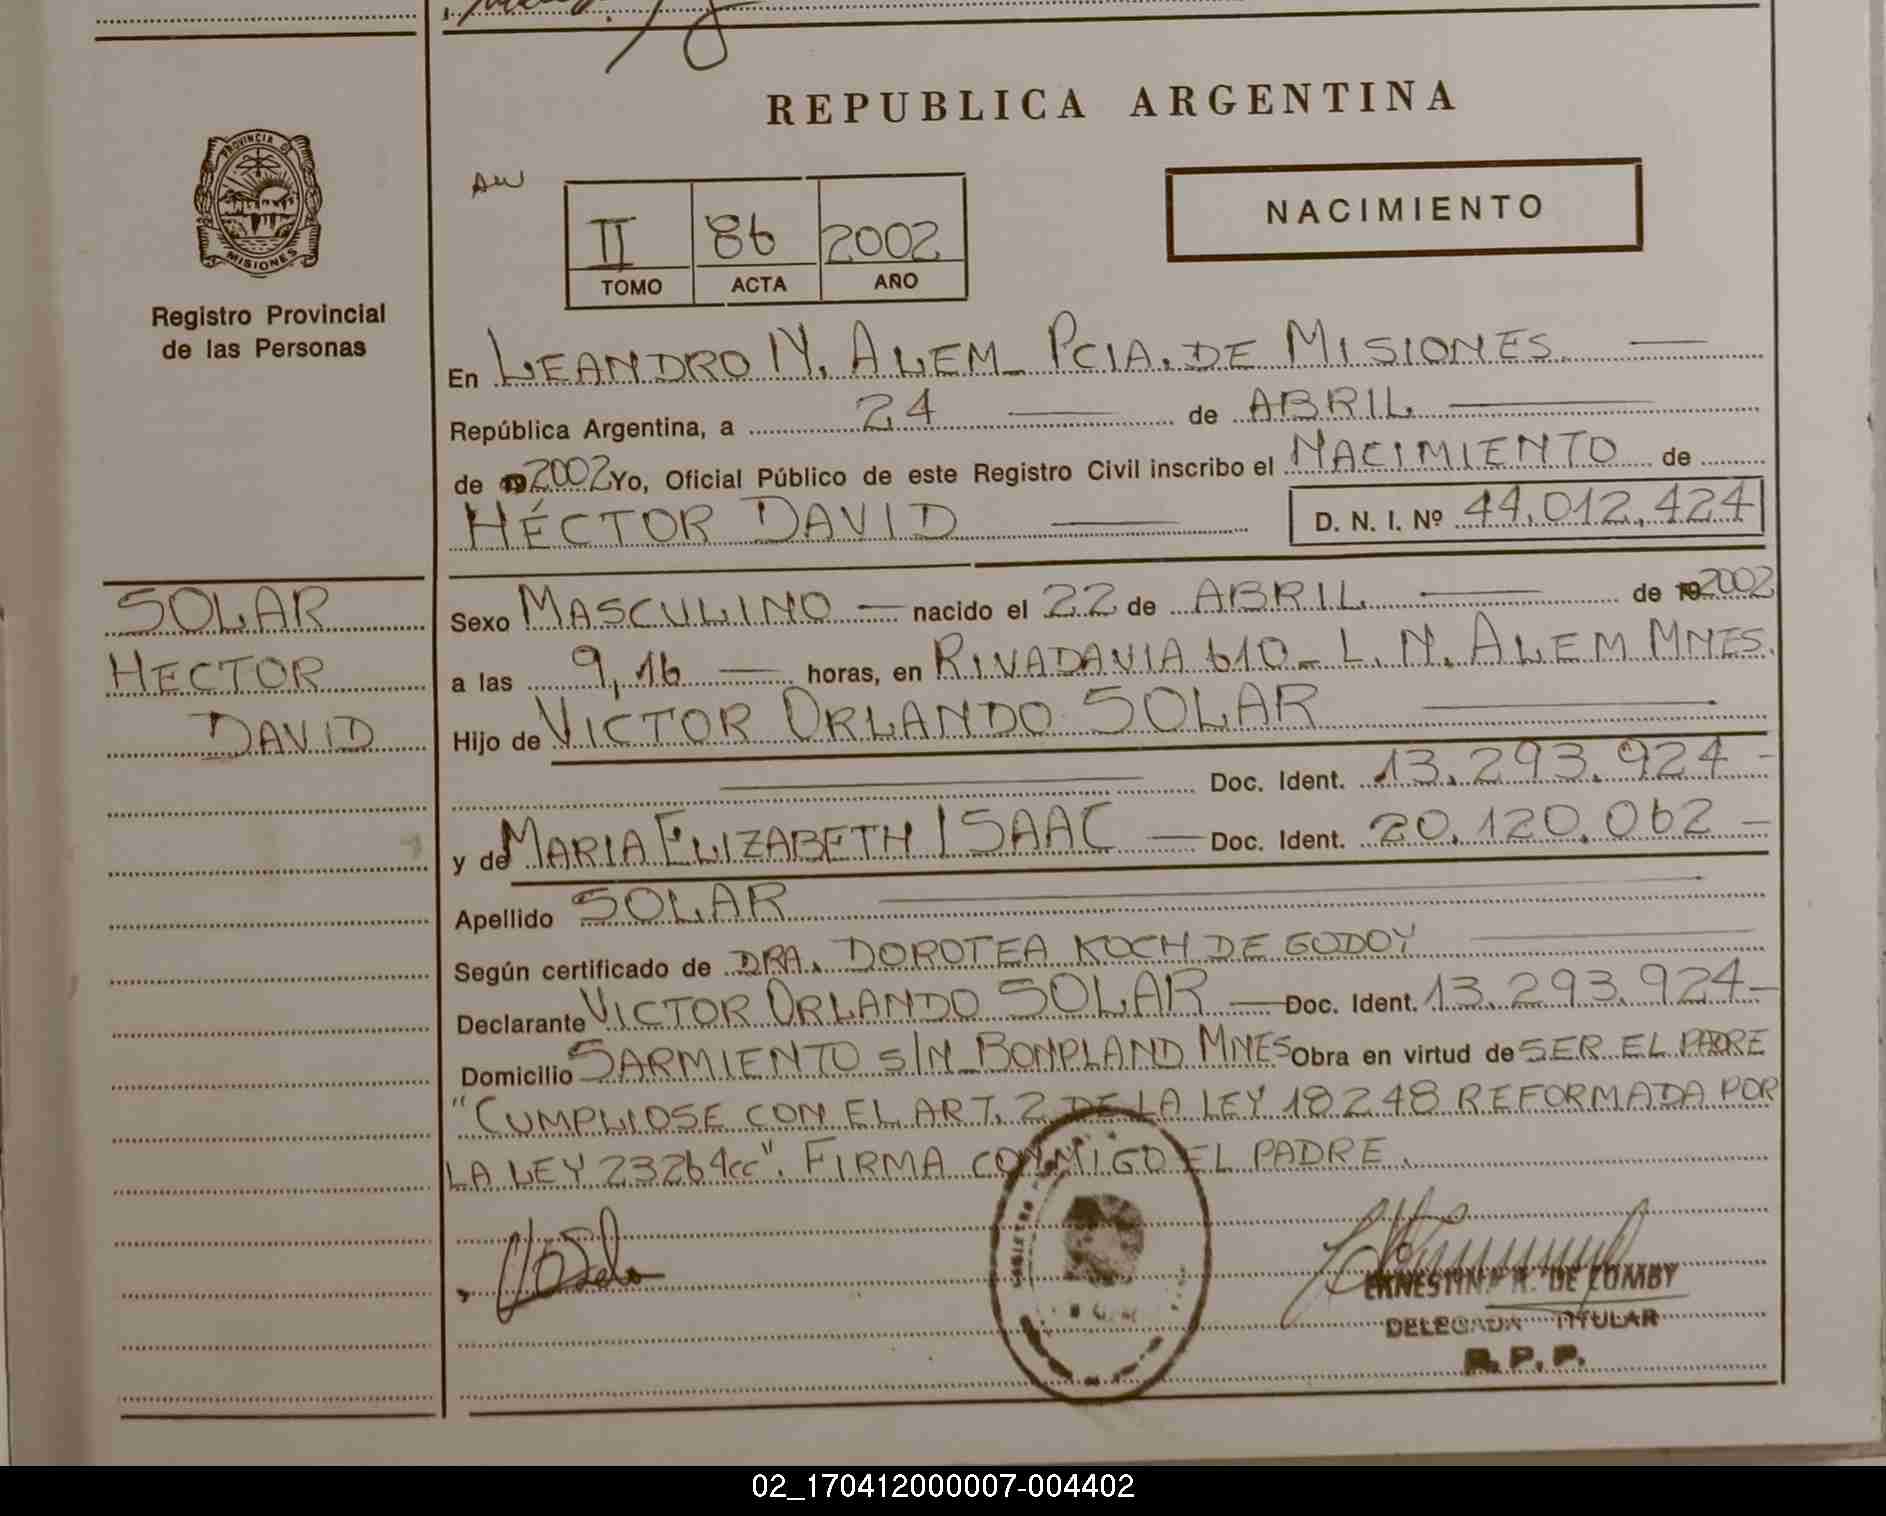 REPUBLICA ARGENTINA
PROVINCIA DE
MISIONES
Registro Provincial
de las Personas
AW
II 86 2002
TOMO ACTA AÑO
NACIMIENTO
En LEANDRO N. ALEM_ PCIA. DE MISIONES.
República Argentina, a 24 de ABRIL
de 192002 Yo, Oficial Público de este Registro Civil inscribo el NACIMIENTO de
HÉCTOR DAVID D. N. I. Nº 44.012.424
SOLAR
HECTOR
DAVID
Sexo MASCULINO — nacido el 22 de ABRIL de 192002
a las 9,16 — horas, en RIVADAVIA 610_ L. N. ALEM MNES.
Hijo de VICTOR ORLANDO SOLAR
Doc. Ident. 13.293.924-
y de MARIA ELIZABETH ISAAC — Doc. Ident. 20.120.062-
Apellido SOLAR
Según certificado de DRA. DOROTEA KOCH DE GODOY
Declarante VICTOR ORLANDO SOLAR — Doc. Ident. 13.293.924-
Domicilio SARMIENTO S/N_ BONPLAND MNES Obra en virtud de SER EL PADRE
"CUMPLIOSE CON EL ART. 2 DE LA LEY 18248 REFORMADA POR
LA LEY 23264cc". FIRMA CONMIGO EL PADRE.
DE ZOMBY
DELEGADA TITULAR
R. P. P.
02_170412000007-004402